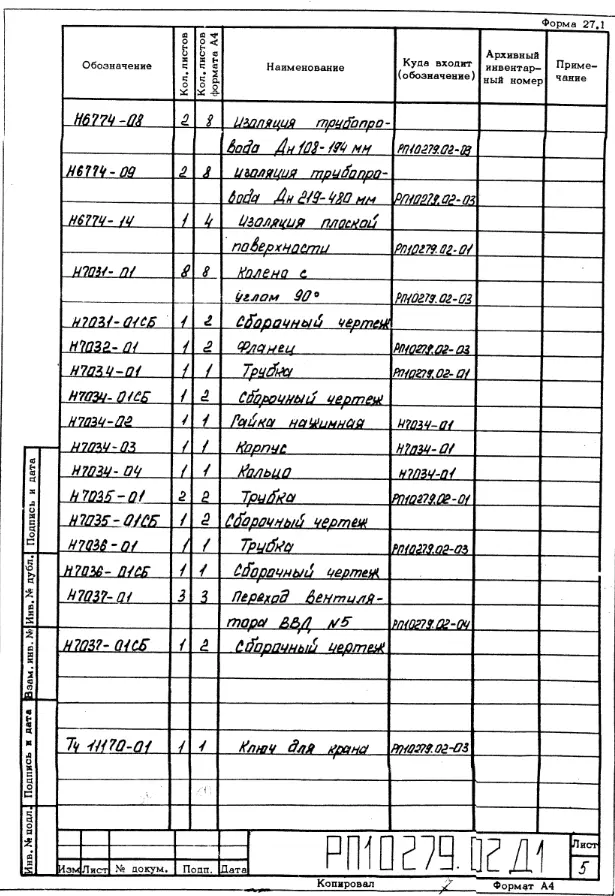 Форма 27.1
Обозначение Кол. листов Кол. листов формата А4 Наименование Куда входит (обозначение) Архивный инвентарный номер Примечание
Н6774-08 2 8 Изоляция трубопро-
вода Дн 108-194 мм РП10279.02-03
Н6774-09 2 8 изоляция трубопро-
вода Дн 219-480 мм РП10279.02-03
Н6774-14 1 4 Изоляция плоской
поверхности РП10279.02-01
Н7031-01 8 8 Колено с
углом 90° РП10279.02-03
Н7031-01СБ 1 2 Сборочный чертеж
Н7032-01 1 2 Фланец РП10279.02-03
Н7034-01 1 1 Трубка РП10279.02-01
Н7034-01СБ 1 2 Сборочный чертеж
Н7034-02 1 1 Гайка нажимная Н7034-01
Н7034-03 1 1 Корпус Н7034-01
Н7034-04 1 1 Кольцо Н7034-01
Н7035-01 2 2 Трубка РП10279.02-01
Н7035-01СБ 1 2 Сборочный чертеж
Н7036-01 1 1 Трубка РП10279.02-03
Н7036-01СБ 1 1 Сборочный чертеж
Н7037-01 3 3 Переход вентиля-
тора ВВД №5 РП10279.02-04
Н7037-01СБ 1 2 Сборочный чертеж
Тч 11170-01 1 1 Ключ для крана РП10279.02-03
Подпись и дата
Инв. № дубл.
Взам. инв. №
Подпись и дата
Инв. № подл.
РП10279.02Д1
Лист
5
Изм Лист № докум. Подп. Дата
Копировал Формат А4